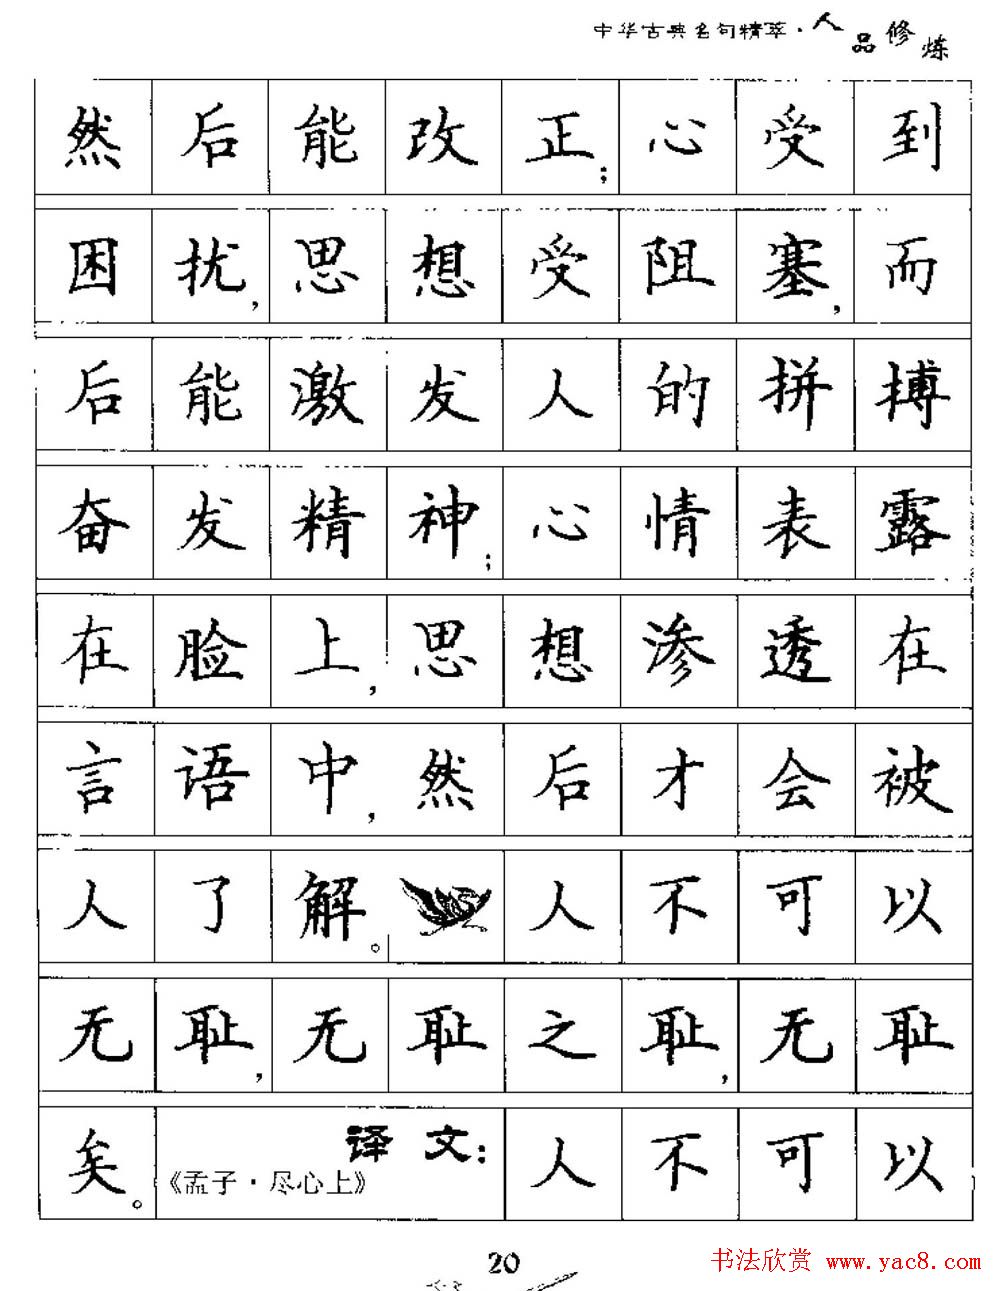 中华古典名句精萃·人品修炼
然后能改正;心受到
困扰,思想受阻塞,而
后能激发人的拼搏
奋发精神;心情表露
在脸上,思想渗透在
言语中,然后才会被
人了解。人不可以
无耻,无耻之耻,无耻
矣。《孟子·尽心上》译文:人不可以
20
书法欣赏 www.yac8.com